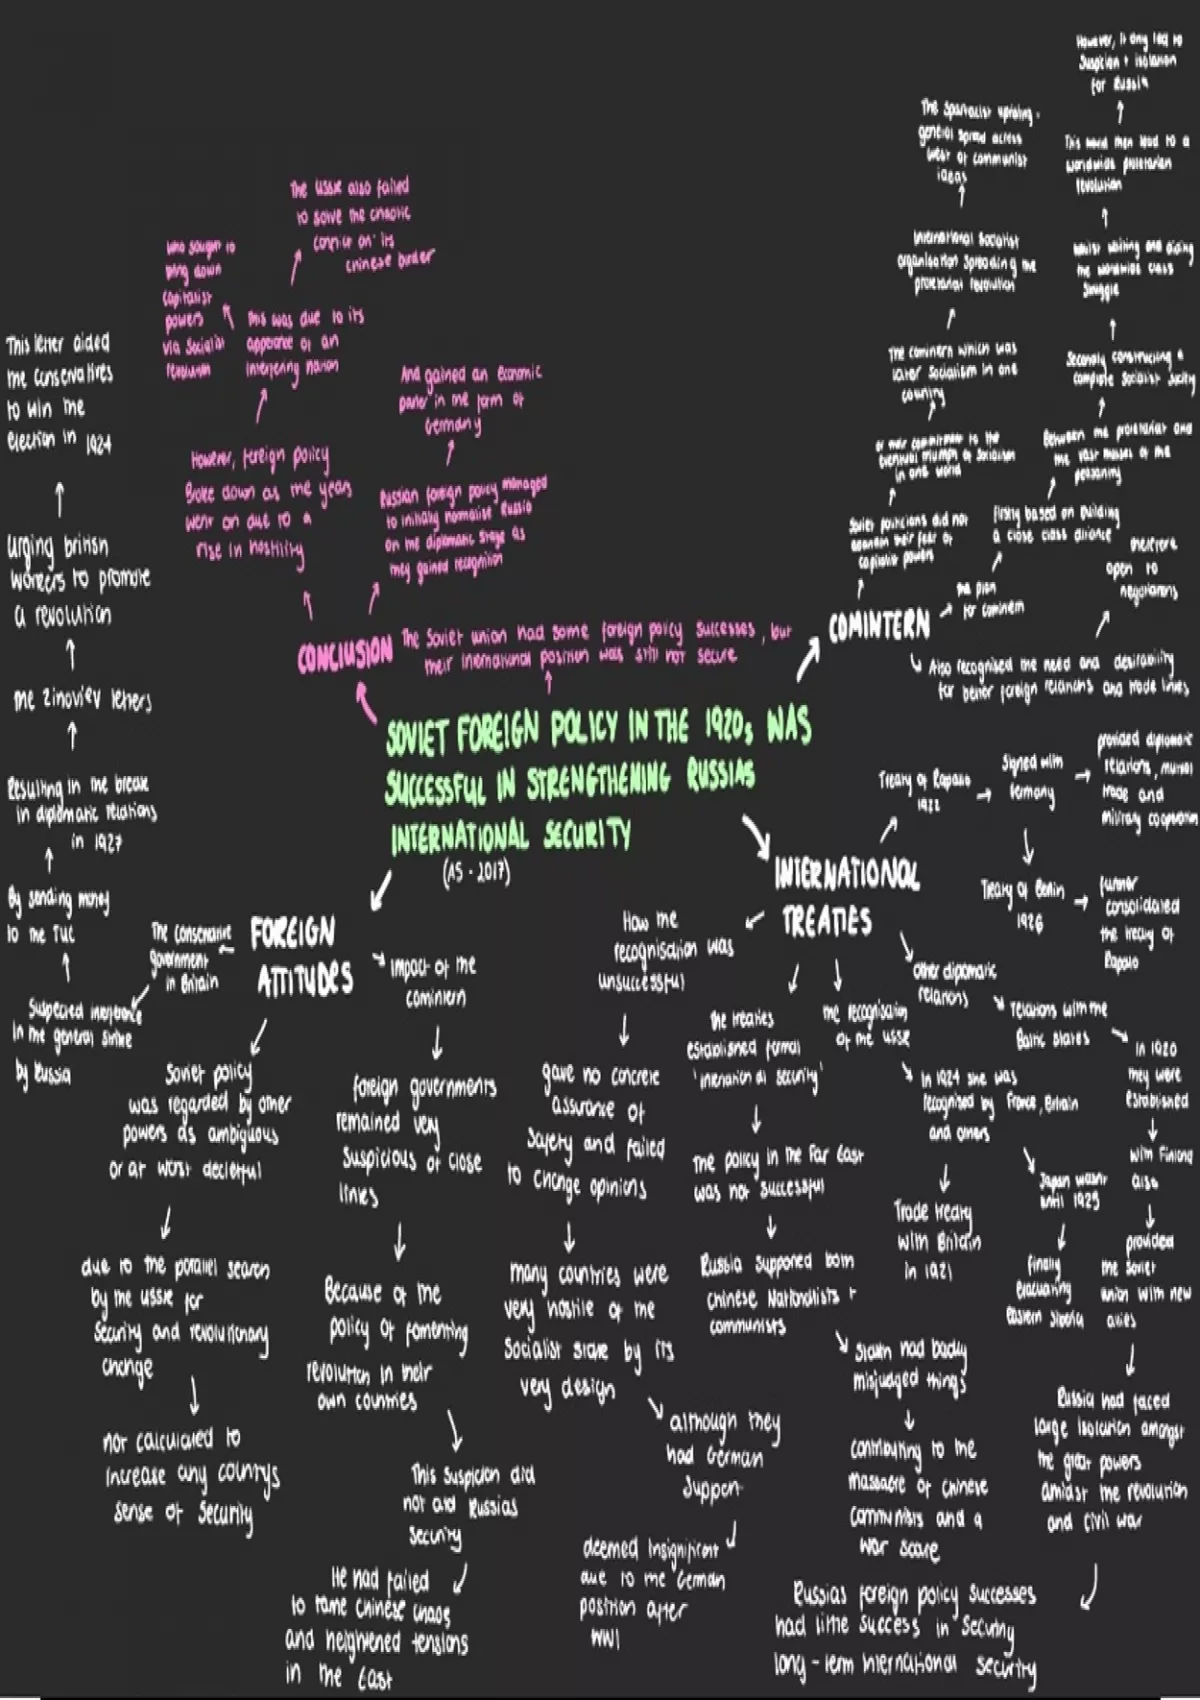 SOVIET FOREIGN POLICY IN THE 1920s WAS
SUCCESSFUL IN STRENGTHENING RUSSIAS
INTERNATIONAL SECURITY
(AS - 2017)
CONCLUSION
The Soviet union had some foreign policy successes, but
their international position was still not secure
Russian foreign policy managed
to initially normalise Russia
on the diplomatic stage as
they gained recognition
And gained an economic
in the form of
Germany
However, foreign policy
Broke down as the years
went on due to a
rise in hostility
This was due to its
appearance of an
interfering nation
who sought to
bring down
capitalist
powers
via socialist
revolution
The USSR also failed
to solve the chaotic
conflict on its
chinese border
COMINTERN
Soviet politicians did not
abandon their fear of
capitalist powers
or their commitment to the
eventual triumph of socialism
in one world
The comintern which was
later socialism in one
country
International socialist
organisation spreading the
proletarian revolution
The Spartacist uprising -
general spread across
west of communist
ideas
the plan
for comintern
Firstly based on building
a close class alliance
Between the proletariat and
the vast masses of the
peasantry
Secondly constructing a
complete socialist society
whilst waiting and aiding
the worldwide class
struggle
This would then lead to a
worldwide proletarian
revolution
However, it only led to
suspicion + isolation
for Russia
Also recognised the need and desirability
for better foreign relations and trade links
therefore
open to
negotiations
INTERNATIONAL
TREATIES
Treaty of Rapallo
1922
Signed with
Germany
provided diplomatic
relations, mutual
trade and
military cooperation
Treaty of Berlin
1926
further
consolidated
the treaty of
Rapallo
other diplomatic
relations
relations with the
Baltic states
in 1920
they were
established
with Finland
also
provided
the Soviet
union with new
allies
Russia had faced
large isolation amongst
the great powers
amidst the revolution
and civil war
Russias foreign policy successes
had little success in securing
long-term international security
the recognisation
of the USSR
in 1924 she was
recognised by France, Britain
and others
Trade treaty
with Britain
in 1921
Japan wasnt
until 1925
finally
evacuating
eastern siberia
the treaties
established formal
'international security'
The policy in the Far East
was not successful
Russia supported both
Chinese Nationalists +
communists
Stalin had badly
misjudged things
contributing to the
massacre of chinese
communists and a
war scare
How the
recognisation was
unsuccessful
gave no concrete
assurance of
safety and failed
to change opinions
many countries were
very hostile of the
socialist state by its
very design
although they
had German
support
deemed insignificant
due to the German
position after
WW1
FOREIGN
ATTITUDES
impact of the
comintern
foreign governments
remained very
suspicious of close
links
Because of the
policy of fomenting
revolution in their
own countries
This suspicion did
not aid Russias
security
He had failed
to tame chinese chaos
and heightened tensions
in the East
Soviet policy
was regarded by other
powers as ambiguous
or at worst deceitful
due to the parallel search
by the USSR for
security and revolutionary
change
not calculated to
increase any countrys
sense of security
The conservative
government
in Britain
Suspected interference
in the general strike
by Russia
By sending money
to the TUC
Resulting in the break
in diplomatic relations
in 1927
the Zinoviev letters
urging british
workers to promote
a revolution
This letter aided
the conservatives
to win the
election in 1924